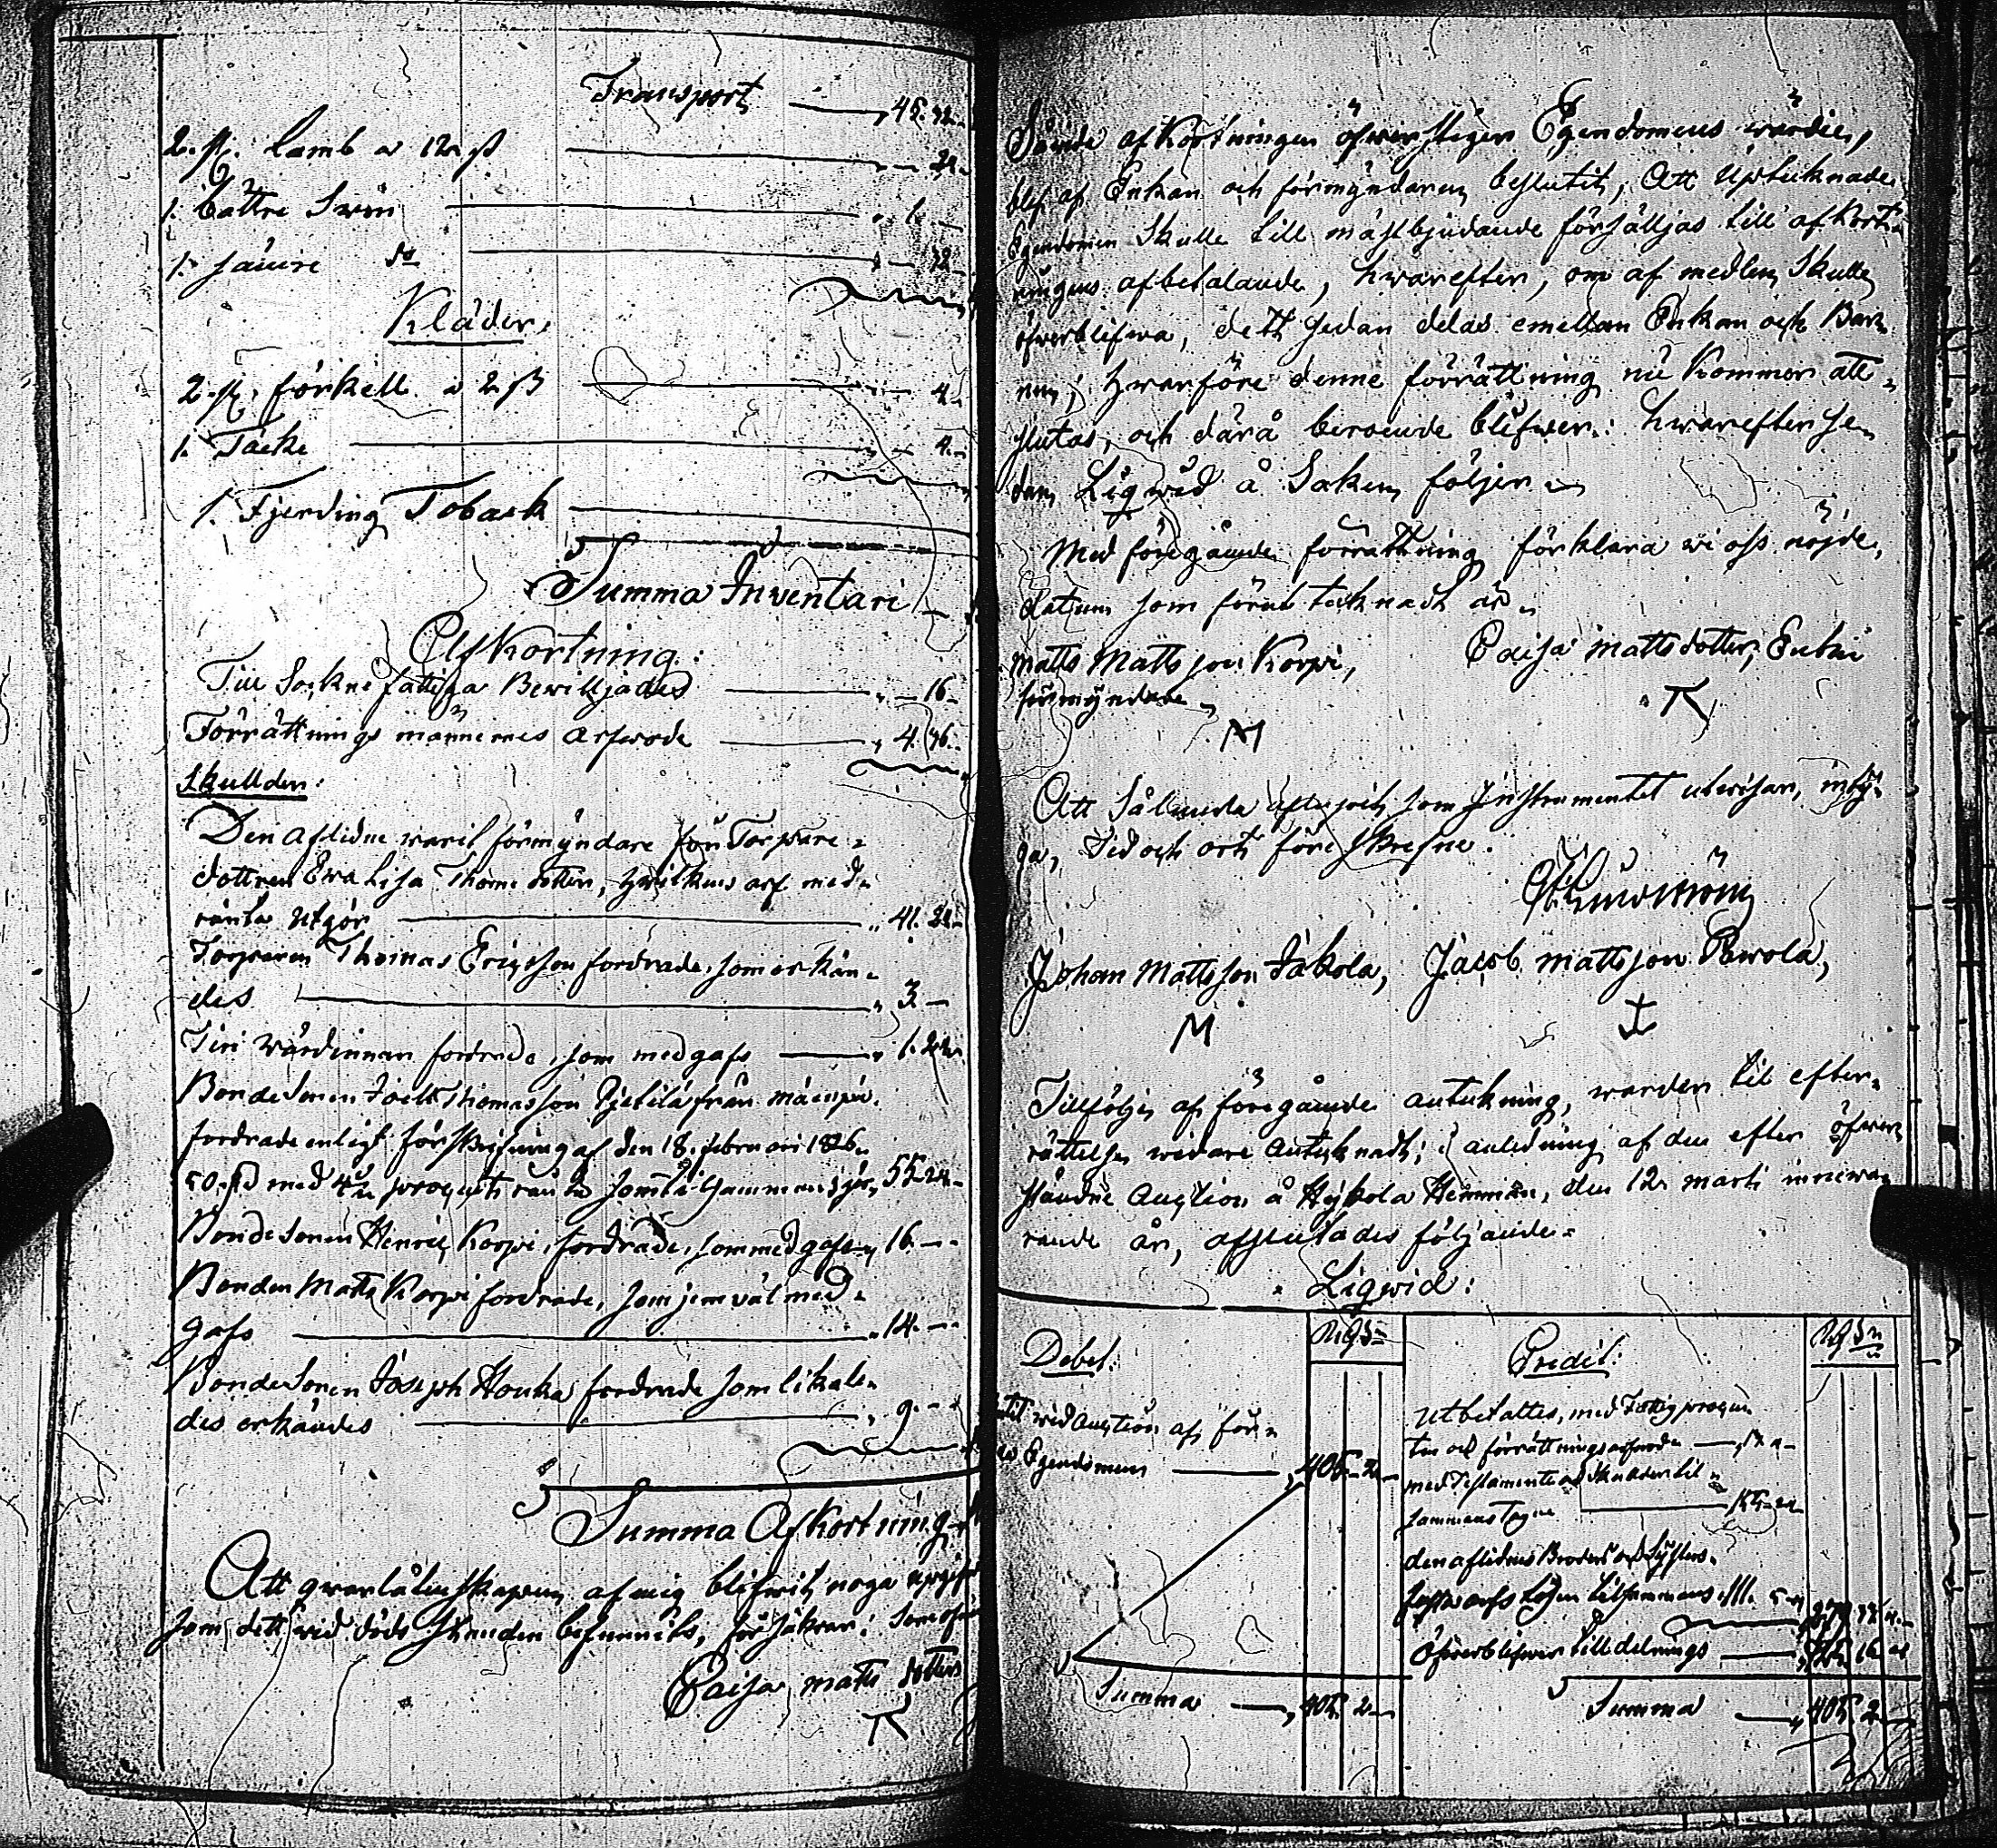 Transport — 45. 42.
2. st. Lamb a 12 ß — 24.
1. bättre Swin — 1. —
1. sämre do — 32.
Kläder.
2. st. förkell a 2 ß — 4.
1. Täcke — 4.
1. Fjerding Toback
Summa Inventari
Afkortning:
Till Sockne fattiga Bewilljades — 16.
Förrättnings männernes arfwode — 4. 46.
Skullder:
Den aflidne warit förmyndare för Torpare
dottren Ewa Lisa Thoms dotter, hwilkens arf med
ränta utgör — 41. 24.
Torparen Thomas Ericsson fordrade, som erkän
des — 3. —
Wärdinnan fordrade, som medgafs — 1.
Bonde Sonen Thomasson från
fordrade enligt förskrifning af den 18. februari 1826.
50. Rd med procents ränta som til sammans gör, 55. 24.
Bonde Sonen Henric Korpi, fordrade, som medgafs 16. —
Bonden Matts Korpi fordrade, som jemväl med
gafs — 14. —
Bonde Sonen Joseph Houka fordrade som likale
des erkändes — 9. —
Summa Afkortning
Att qwarlåtenskapen af mig blifwit noga upgifwit
som dett wid döds stunden befunnits, försäkrar;
Caisa matts dotter
Således afkortningen öfwerstiger Egendomens wärde,
blef af Enkan och förmyndaren beslutit, Att uptecknade
Egendomen skulle till mästbjudande försälljas till afkort
ningens afbetalande, hwarefter, om af medlen skulle
öfwerblifwa, dett sedan delas emellan Enkan och Bar
nen; hwarföre denne förrättning nu kommer att
slutas, och därå beroende blifwer: hwarefter se
dan Liqwid å Saken följer
Med föregående förrättning förklara wi oss nöjde,
datum som förut tecknadt är.
Matts Mattsson Korpi, Caisa Mattsdotter, Enka
förmyndare
M
Att Således tilgådt som Instrumentet utwisar, inty
ga, Tid och ort före skrefne.
Johan Mattsson Jakola, Jacob Mattsson Rewola,
M
Tillfölje af föregående anteckning, warder til efter
rättelse widare antecknadt; i anledning af den efter öfwer
ståndne Auction å Hykola Hemman, den 12 marti innewa
rande år, afslutades följande
Liqwid:
Debet: Credit:
wid Auction af för
Egendomen — 405. 2
Utbetaltes, med Fattig procen
ten och förrättningsarfwode
med Testamente och Skullder til
sammans Tagne
den aflidnes Broders och Systers
tillsammans
Öfwerblifwer till delnings
Summa — 405. 2
Summa — 405 2